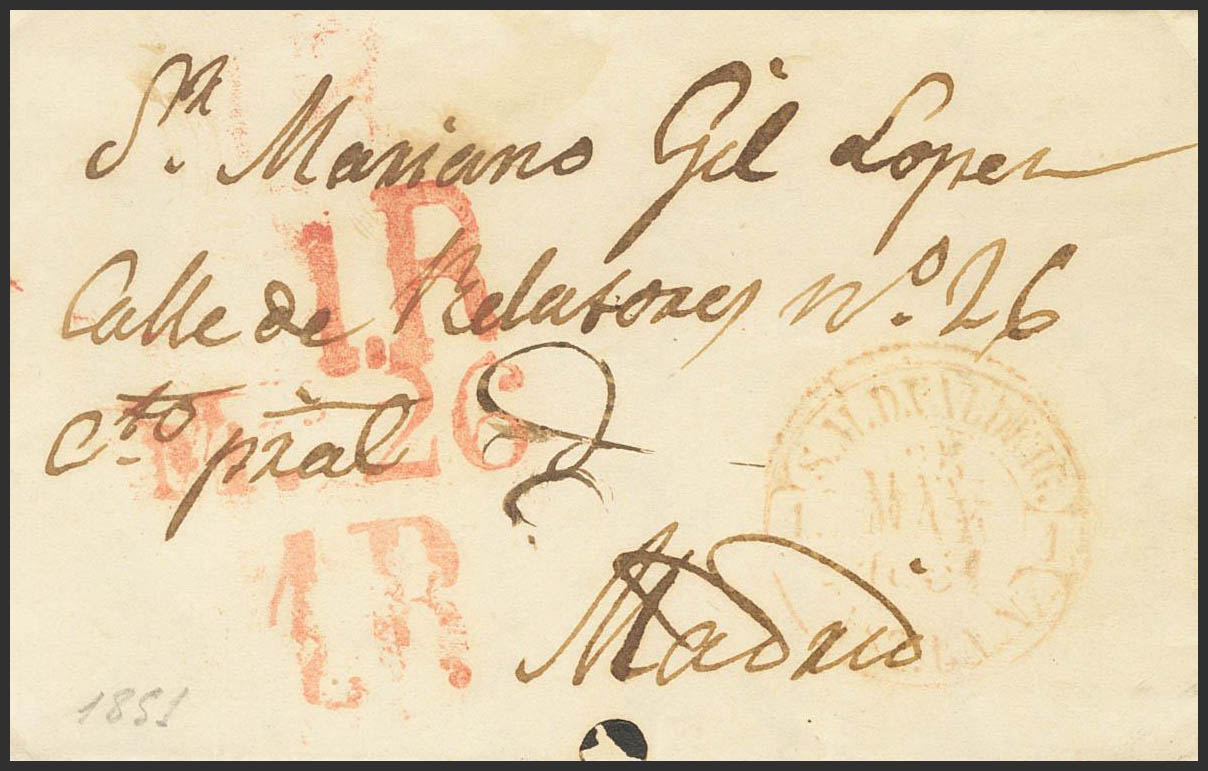 Sr. Mariano Gil Lopez
Calle de Relatores nº. 26
Cto. pral
Madrid
1R
1R.
M. 26
1R.
S.M.D.VALDEIG.
MAY
1851